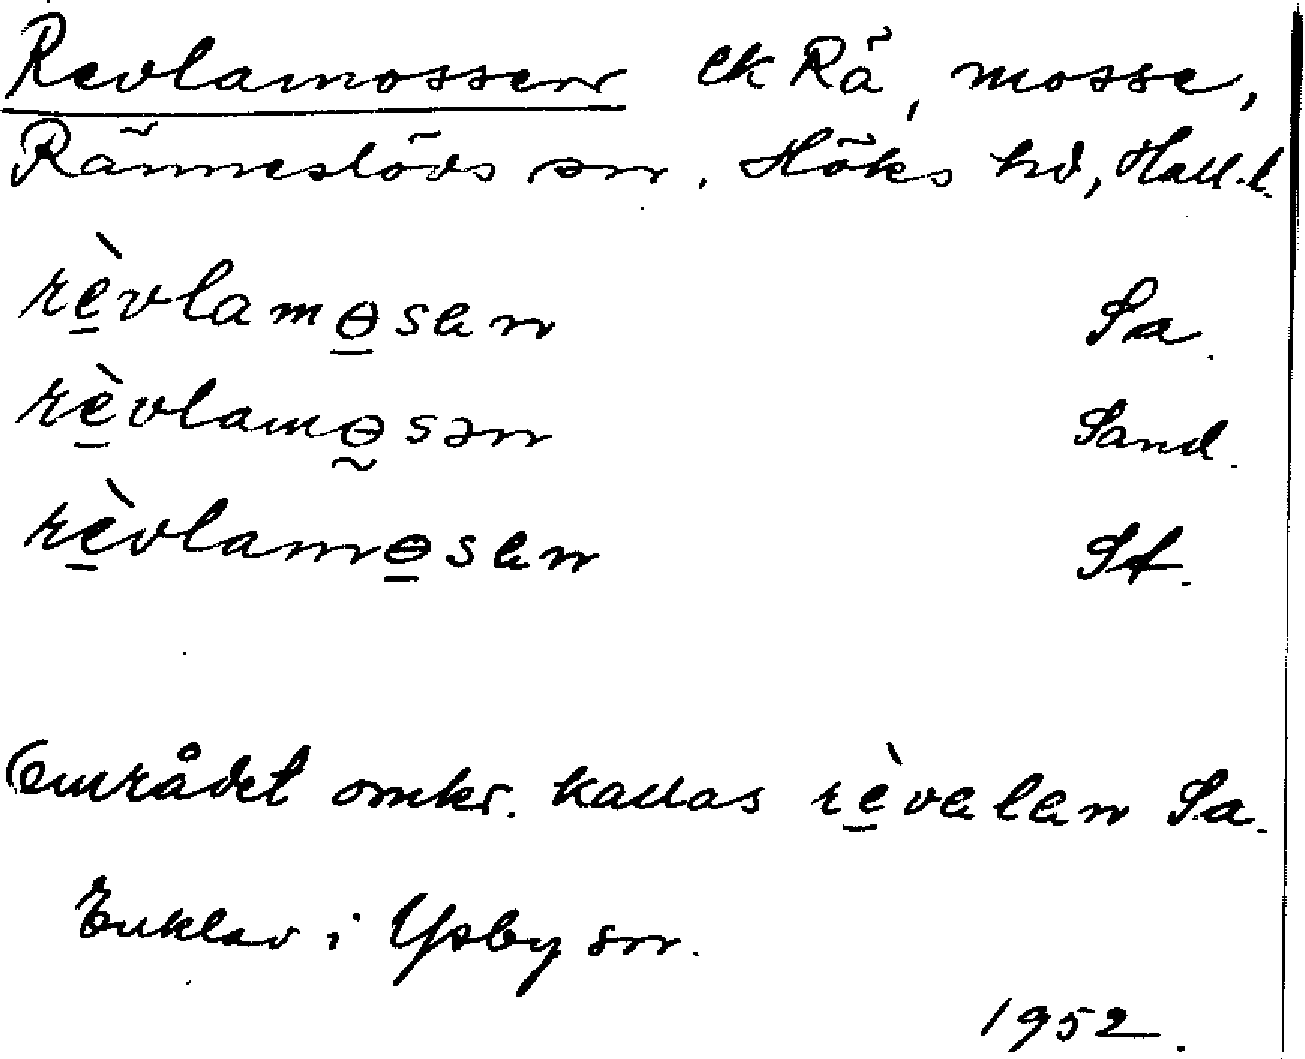 Revlamossen ek Rä, mosse,
Ränneslövs sn. Höks hd, Hall.l.
rè̱vlamɵ̱sen Sa.
rè̱vlamɵ̰sən Sand.
rè̱vlamɵ̱sen St.
Området omkr. kallas rè̱velen Sa.
Enklav i Ysby sn.
1952.